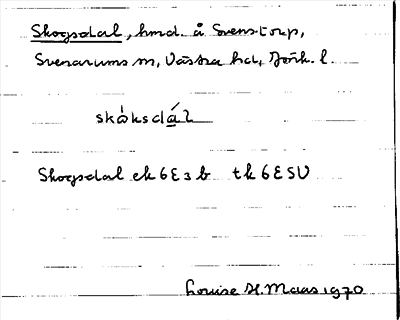 Skogsdal, hmd. å Svenstorp,
Svenarums sn, Västra hd, Jönk. l.
skòksdá̱l
Skogsdal ek 6E3b tk 6E SV
Louise H. Maas 1970